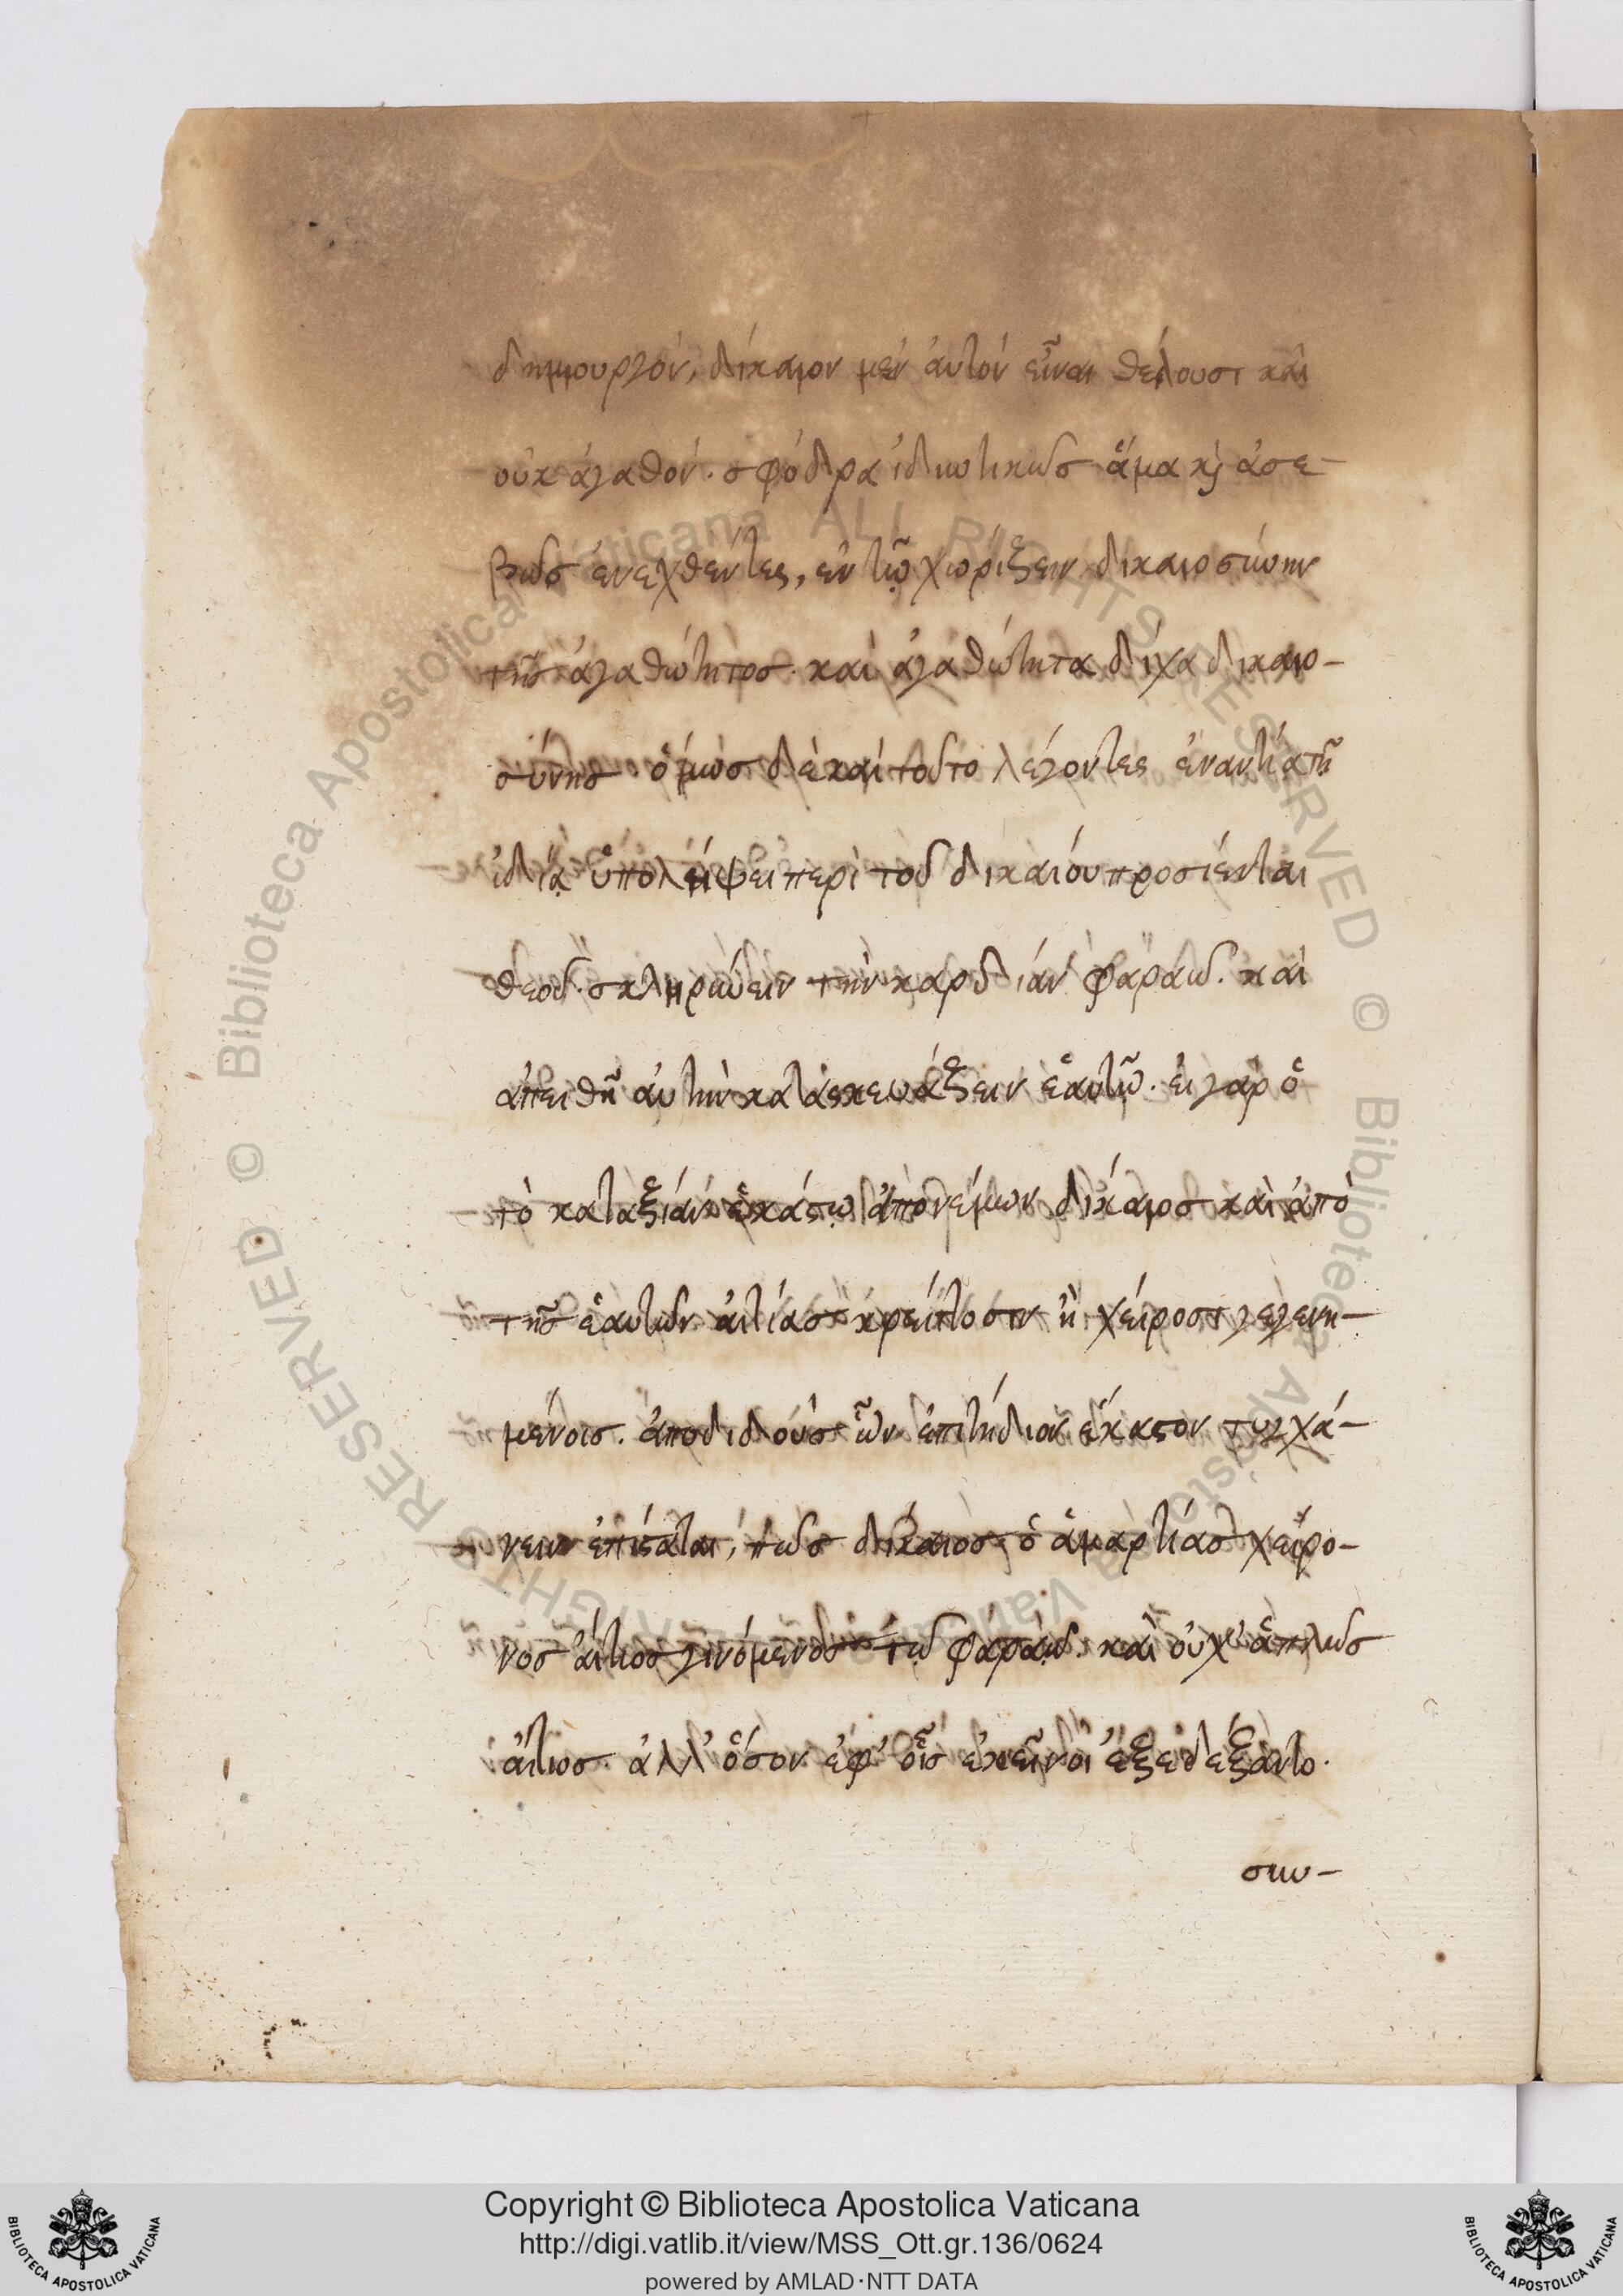 δημιουργόν, δίκαιον μὲν ἀυτὸν εἶναι θέλουσι καὶ
οὐκ ἀγαθόν. σφόδρα ἰδιωτικῶς ἅμα κ̀ ἀσε-
βῶς ἐνεχθέντες, ἐν τῶ χωρίζειν δικαιοσύνην
τῆς ἀγαθότητος. καὶ ἀγαθότητα δίχα δικαιο-
σύνης. ὅμως δὲ καὶ τοῦτο λέγοντες ἐναντία τῆ
ἰδία ὑπολήψει περὶ τοῦ δικαίου προσίενται
θεοῦ. σκληρύνειν τὴν καρδίαν φαραώ. καὶ
ἀπειθῆ ἀυτὴν κατασκευάζειν ἑαυτῶ. ει γὰρ ὁ
τὸ καταξίαν ἑκάστω ἀπονέμων δίκαιος καὶ ἀπὸ
τῆς ἑαυτῶν ἀιτίας κρείττοσιν ἢ χείροσι γεγενη-
μένοις. ἀποδιδοὺς ὧν ἐπιτήδιον ἕκαστον τυγχά-
νειν ἐπίσταται, πῶς δίκαιος ὁ ἁμαρτίας χείρο-
νος αίτιος γινόμενος τῶ φαραώ. καὶ οὐχ' ἁπλῶς
αίτιος. ἀλλ' ὅσον ἐφ' οἷς ἐκεῖνοι ἐξεδέξαντο.
συν-
Copyright © Biblioteca Apostolica Vaticana
http://digi.vatlib.it/view/MSS_Ott.gr.136/0624
powered by AMLAD·NTT DATA
© Biblioteca Apostolica Vaticana ALL RIGHTS RESERVED
© Biblioteca Apostolica Vaticana ALL RIGHTS RESERVED
BIBLIOTECA APOSTOLICA VATICANA
BIBLIOTECA APOSTOLICA VATICANA